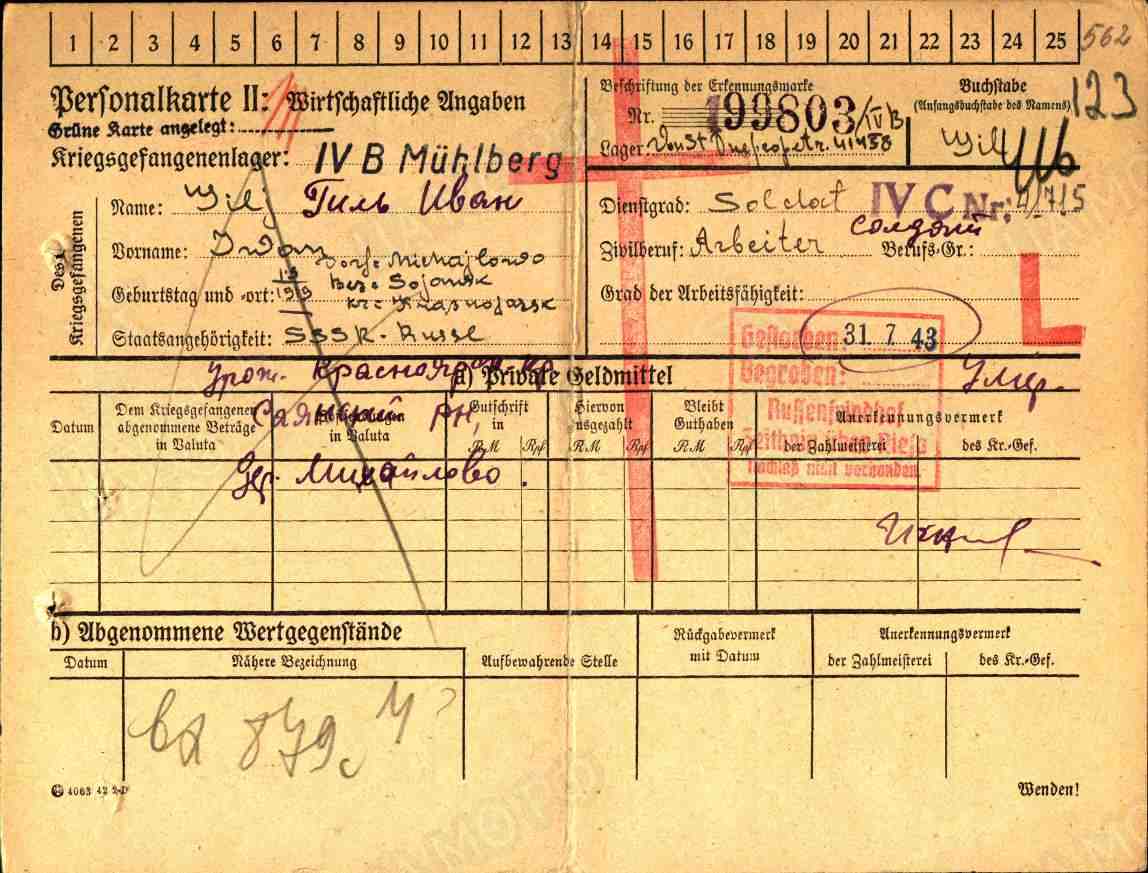 1 2 3 4 5 6 7 8 9 10 11 12 13 14 15 16 17 18 19 20 21 22 23 24 25
562
Personalkarte II: Wirtschaftliche Angaben
Grüne Karte angelegt:
Kriegsgefangenenlager: IV B Mühlberg
Beschriftung der Erkennungsmarke
Nr. 199803/IV B
Lager:
Buchstabe
(Anfangsbuchstabe des Namens)
123
Des Kriegsgefangenen
Name: Гиль Иван
Vorname: Iwan
Dorf: Michajlowo
Geburtstag und -ort:
Kr: Krasnojarsk
Staatsangehörigkeit: SSSR - Russe
Dienstgrad: Soldat IV C Nr.
солдат
Zivilberuf: Arbeiter Berufs-Gr.:
Grad der Arbeitsfähigkeit:
L
Gestorben: 31. 7. 43
Begraben:
Russenfriedhof
Nachlaß nicht vorhanden.
Умер.
Урож. Красноярский кр.
a) Private Geldmittel
Саянский рн,
Дер. Михайлово.
Datum
Dem Kriegsgefangenen abgenommene Beträge in Valuta
in Valuta
Gutschrift in
RM Rpf
Hiervon ausgezahlt
RM Rpf
Bleibt Guthaben
RM Rpf
Anerkennungsvermerk
der Zahlmeisterei des Kr.-Gef.
b) Abgenommene Wertgegenstände
Datum
Nähere Bezeichnung
Aufbewahrende Stelle
Rückgabevermerk mit Datum
Anerkennungsvermerk
der Zahlmeisterei des Kr.-Gef.
4063 42 2-D
Wenden!